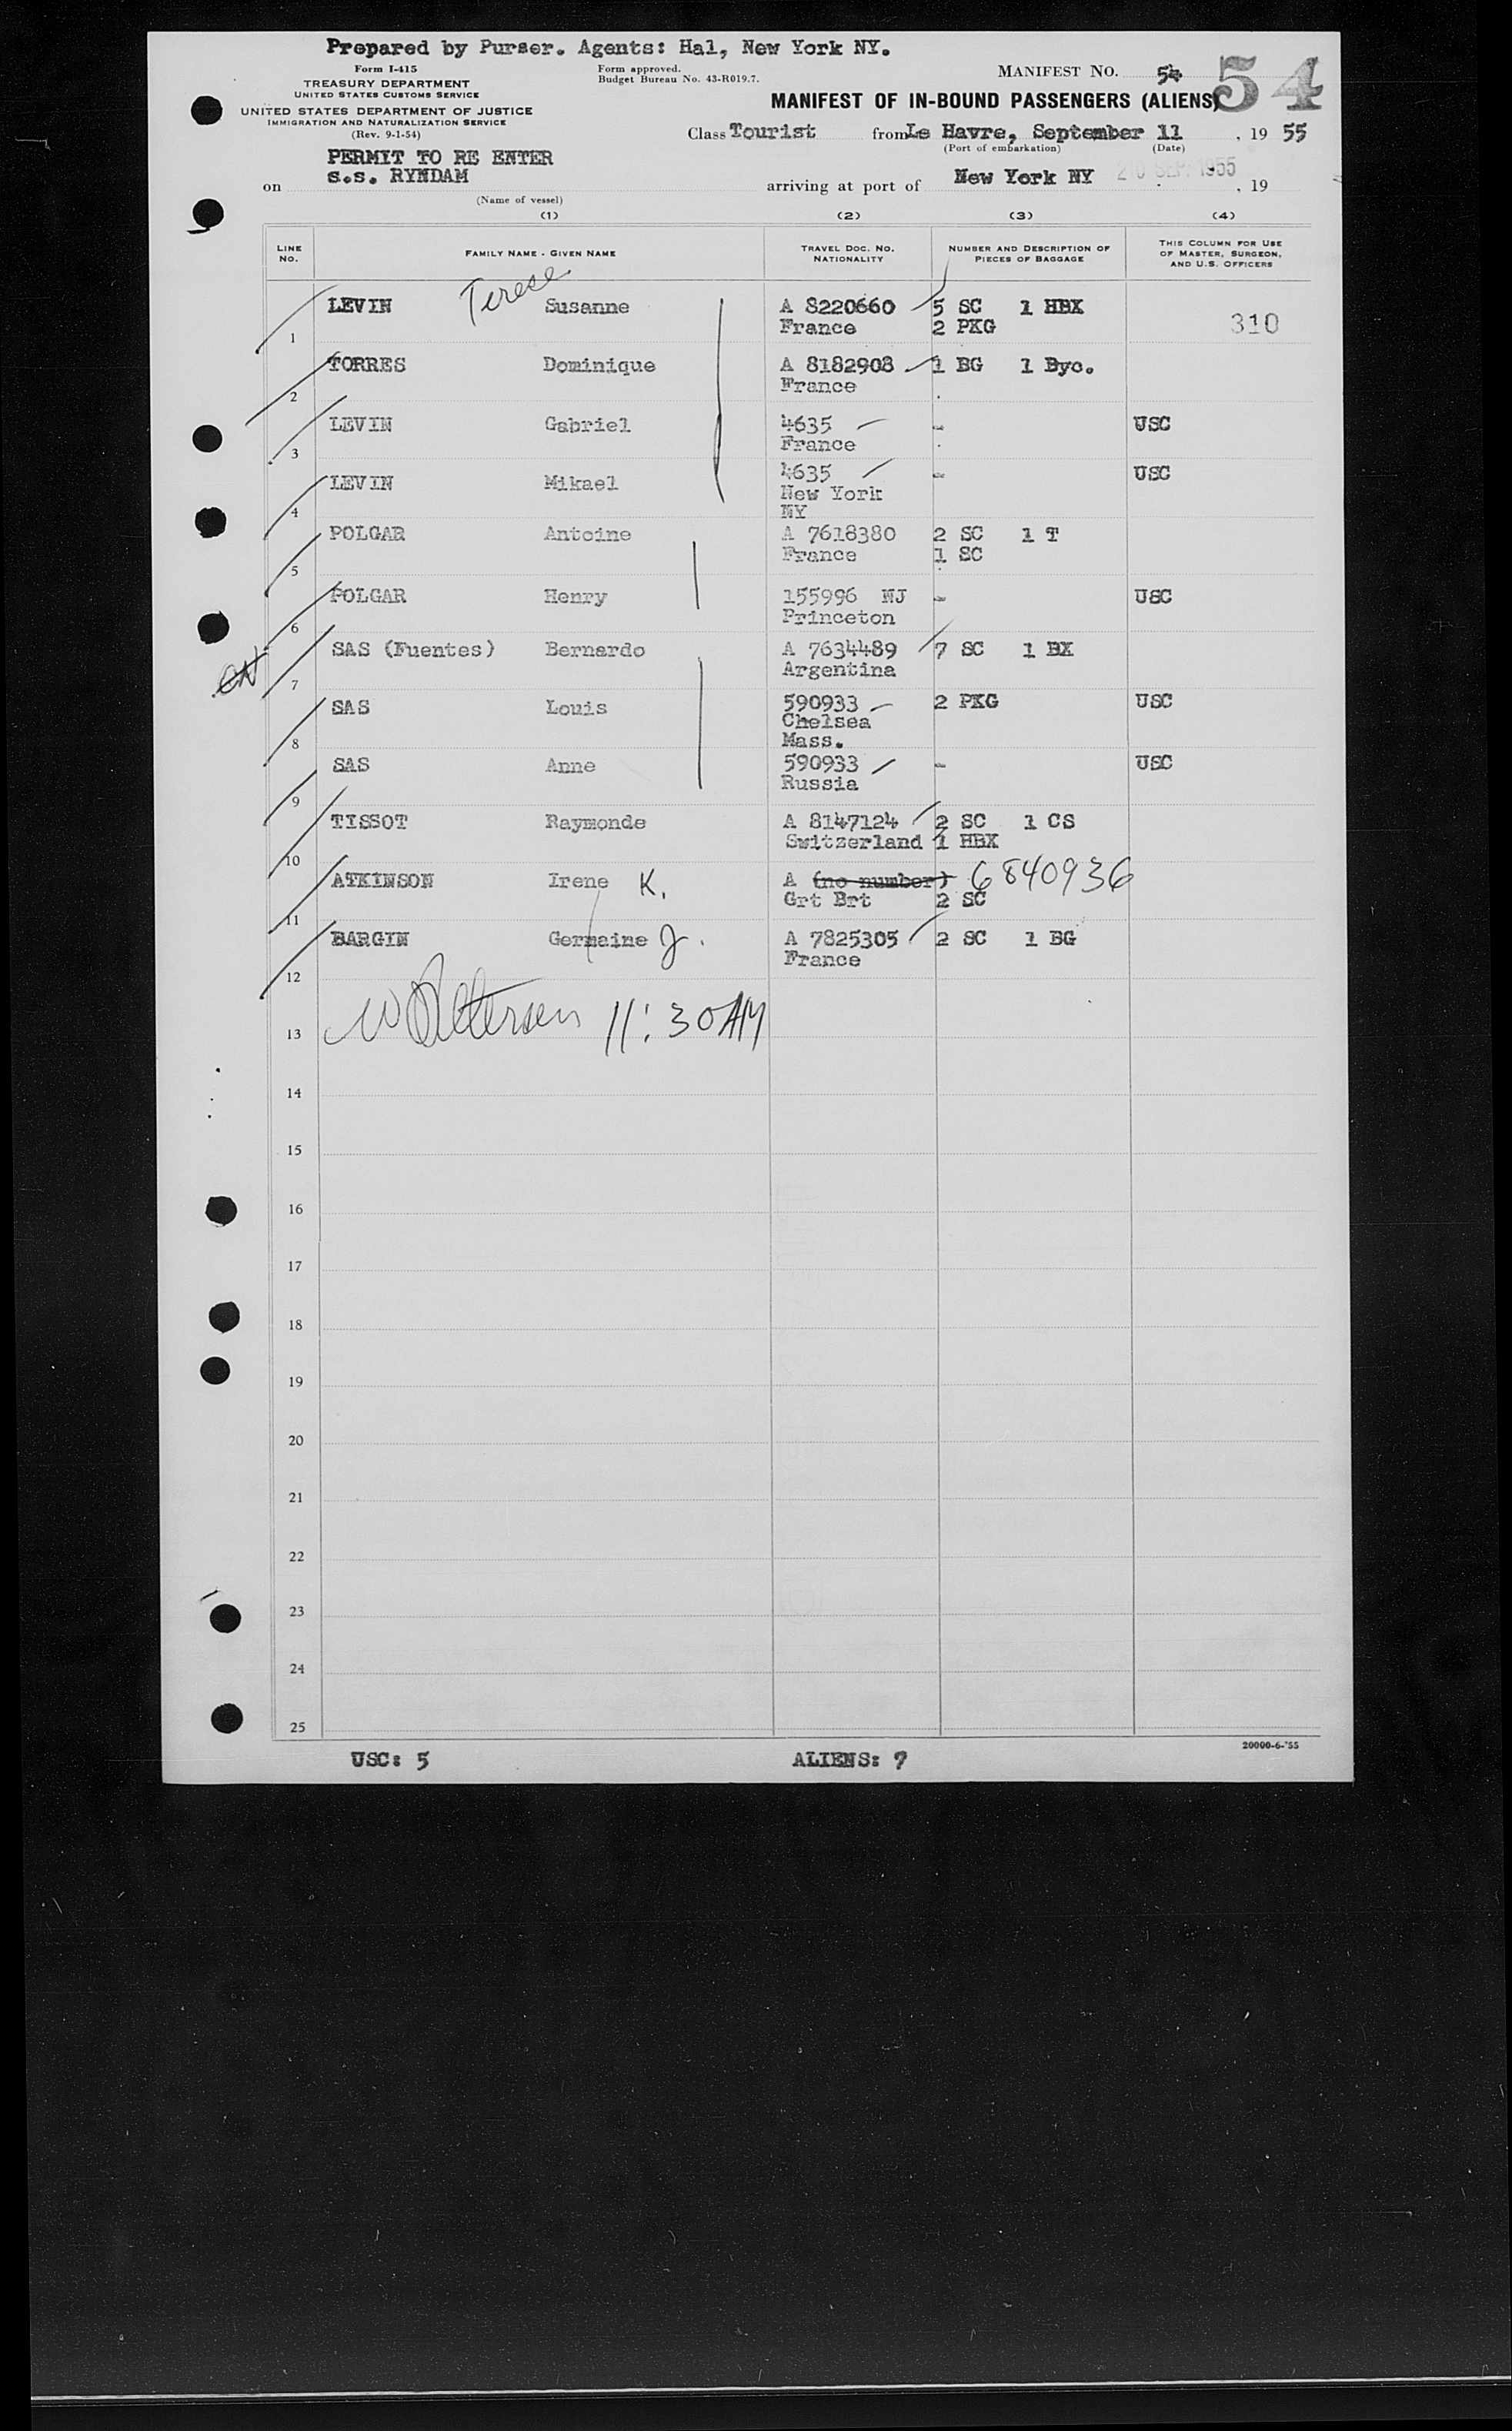 Prepared by Purser. Agents: Hal, New York NY.
Form I-415
TREASURY DEPARTMENT
UNITED STATES CUSTOMS SERVICE
UNITED STATES DEPARTMENT OF JUSTICE
IMMIGRATION AND NATURALIZATION SERVICE
(Rev. 9-1-54)
Form approved.
Budget Bureau No. 43-R019.7.
MANIFEST NO. 54 54
MANIFEST OF IN-BOUND PASSENGERS (ALIENS)
Class Tourist from Le Havre, September 11, 19 55
(Port of embarkation) (Date)
PERMIT TO RE ENTER
on s.s. RYNDAM arriving at port of New York NY 20 SEP. 1955, 19
(Name of vessel)
(1) (2) (3) (4)
LINE NO. FAMILY NAME - GIVEN NAME TRAVEL DOC. NO. NATIONALITY NUMBER AND DESCRIPTION OF PIECES OF BAGGAGE THIS COLUMN FOR USE OF MASTER, SURGEON, AND U.S. OFFICERS
Terese
LEVIN Susanne A 8220660 5 SC 1 HBX
1 France 2 PKG 310
TORRES Dominique A 8182908 1 BG 1 Byc.
2 France
LEVIN Gabriel 4635 - USC
3 France
LEVIN Mikael 4635 - USC
4 New York
NY
POLGAR Antoine A 7618380 2 SC 1 T
5 France 1 SC
POLGAR Henry 155996 NJ - USC
6 Princeton
SAS (Fuentes) Bernardo A 7634489 7 SC 1 BX
7 Argentina
SAS Louis 590933 2 PKG USC
8 Chelsea
Mass.
SAS Anne 590933 - USC
9 Russia
TISSOT Raymonde A 8147124 2 SC 1 CS
10 Switzerland 1 HBX
ATKINSON Irene K. A (no number) 6840936
11 Grt Brt 2 SC
BARGIN Germaine J. A 7825305 2 SC 1 BG
12 France
13 11:30 AM
14
15
16
17
18
19
20
21
22
23
24
25
20000-6-'55
USC: 5 ALIENS: 7